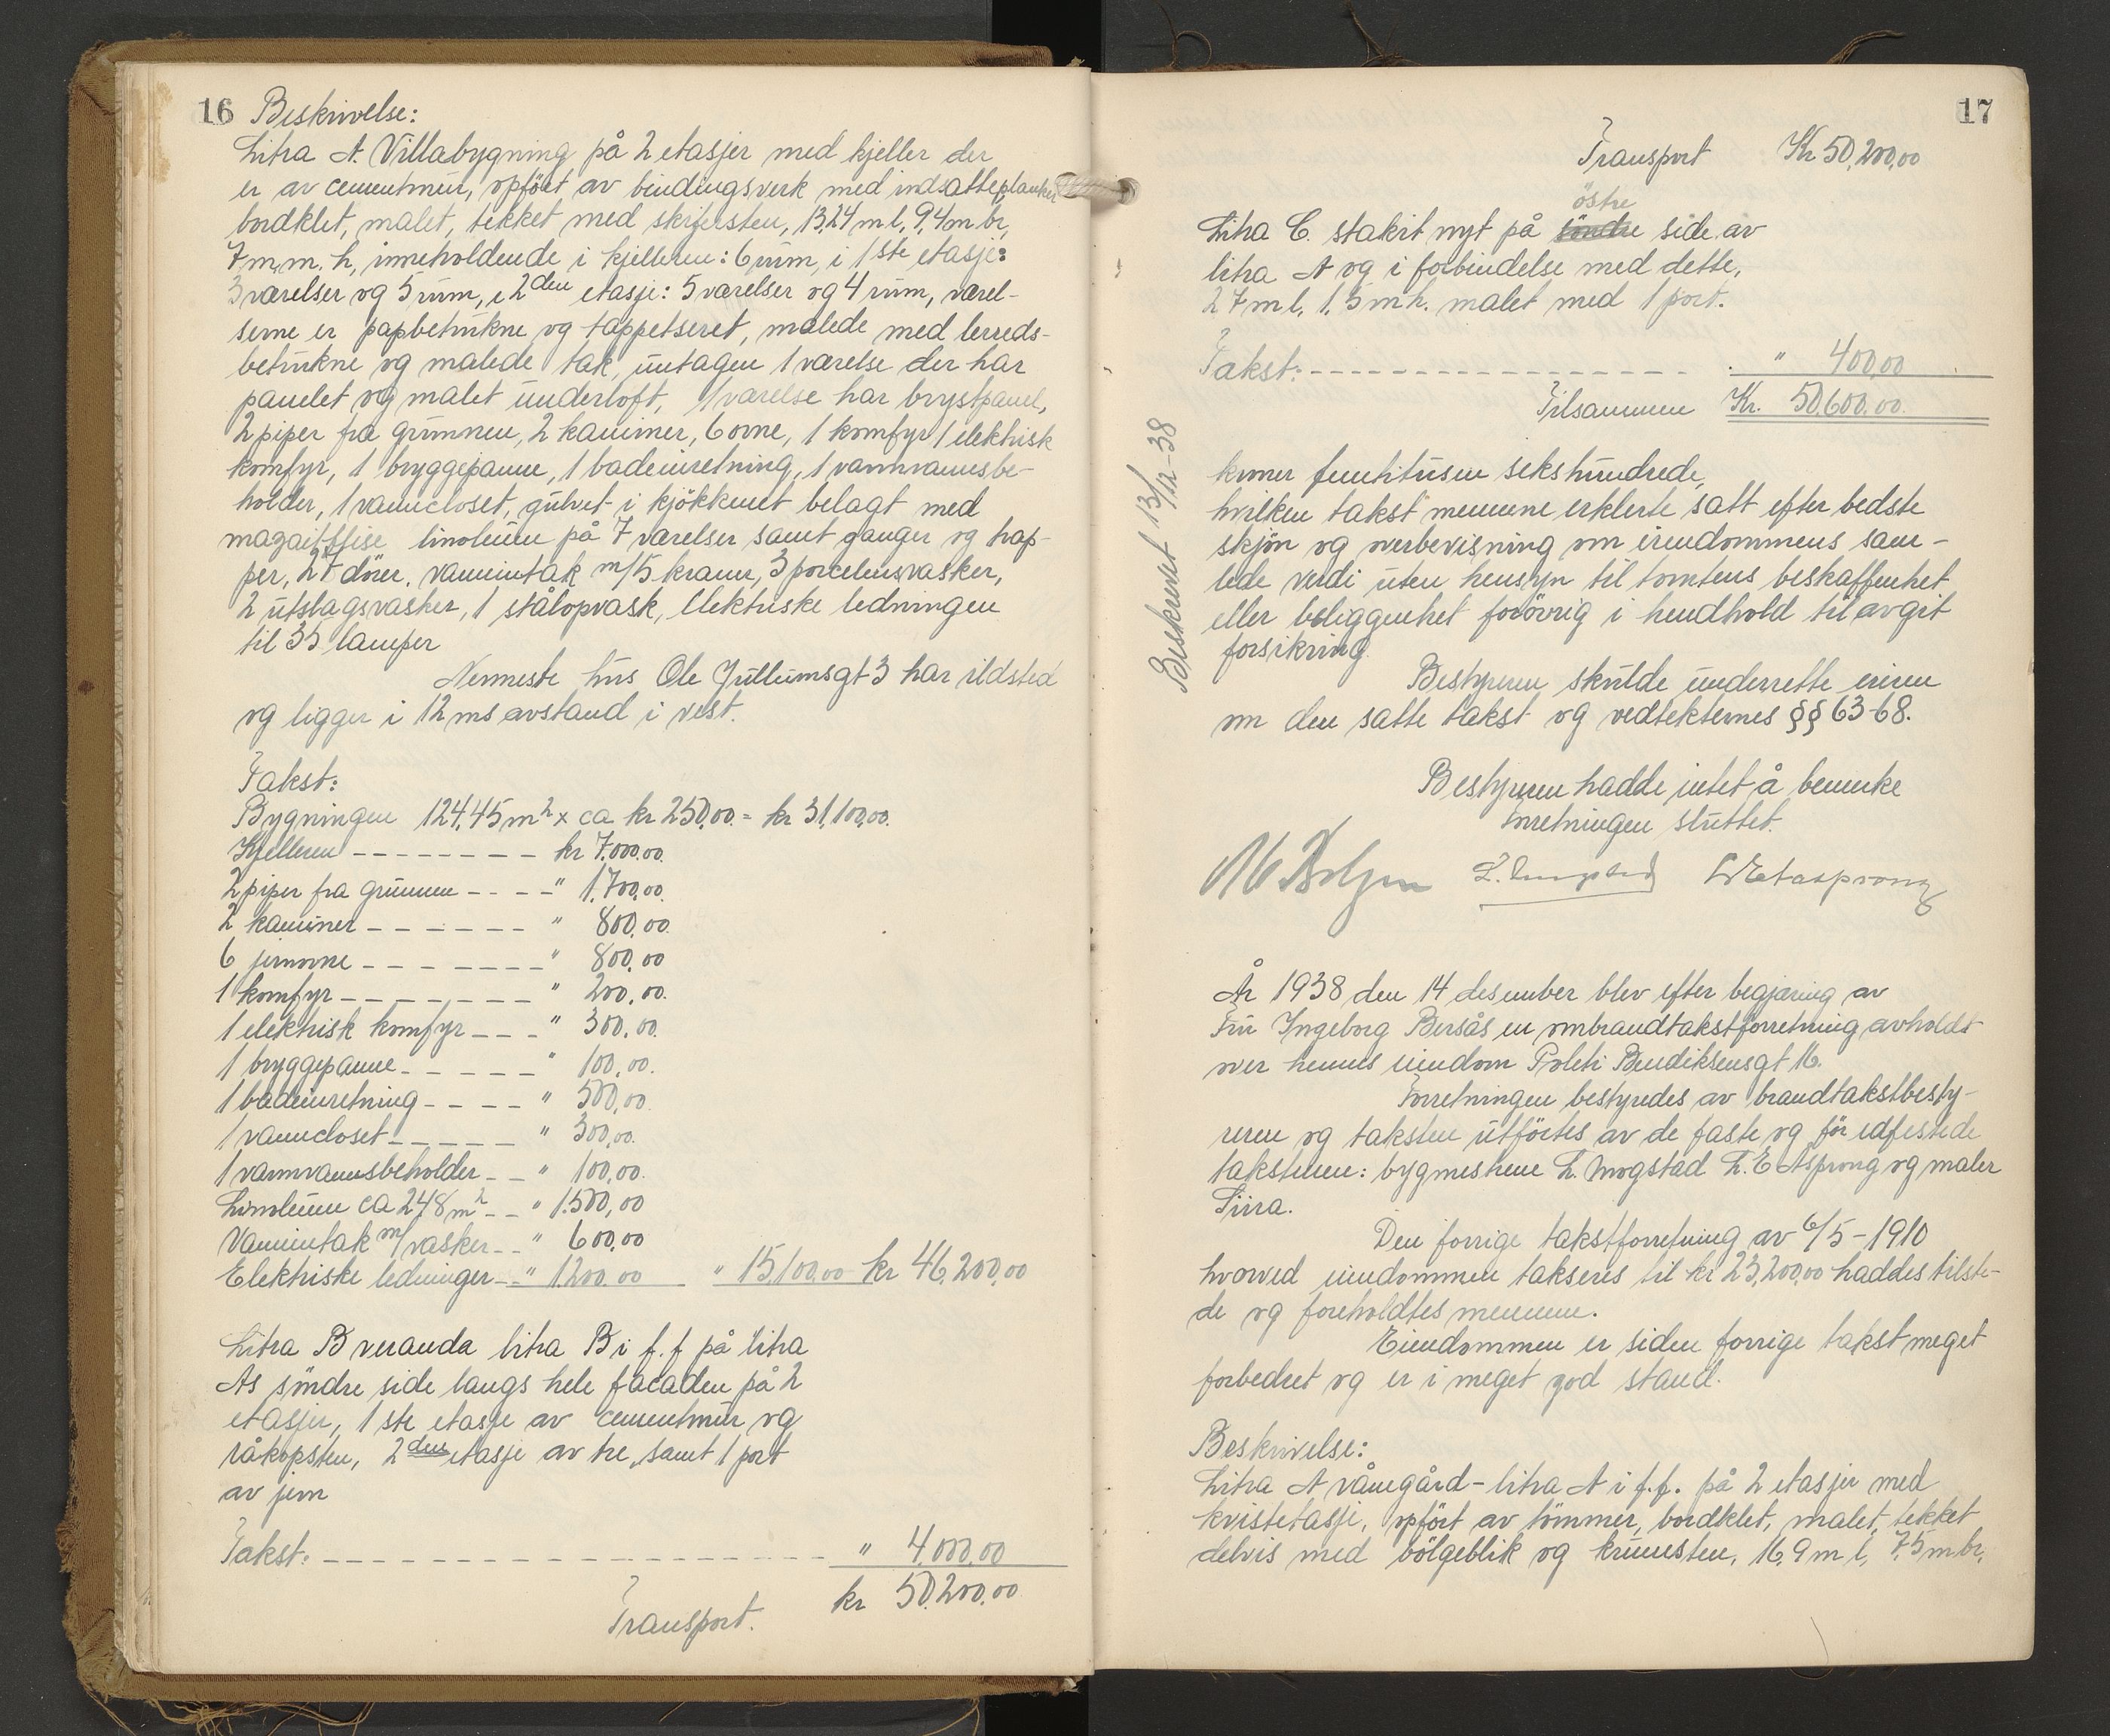 16 Beskrivelse:
Litra A. Villabygning på 2 etasjer med kjeller der
er av cementmur, opført av bindingsverk med indsatte planker
bordklet, malet, tekket med skifersten, 13,24 m l, 9,4 m br,
7 m. m. h, inneholdende i kjelleren: 6 rum, i 1ste etasje:
3 værelser og 5 rum, i 2den etasje: 5 værelser og 4 rum, værel-
serne er papbetrukne og tappetseret, malede med lerreds-
betrukne og malede tak, untagen 1 værelse der har
panelet og malet underloft, 1 værelse har brystpanel,
2 piper fra grunnen, 2 kaminer, 6 ovne, 1 komfyr 1 elektrisk
komfyr, 1 bryggepanne, 1 badeinretning, 1 varmvannsbe-
holder, 1 vanncloset, gulvet i kjøkkenet belagt med
linoleum på 7 værelser samt ganger og trap-
per, dører. vannintak m/5 kraner, 3 porcelensvasker,
2 utslagsvasker, 1 stålopvask, Elektriske ledningen
til 35 lamper
Nermeste hus Ole Jullumsgt 3 har ildsted
og ligger i 12 ms avstand i vest.
Takst:
Bygningen 124,45 m2 x ca kr 250,00 = kr 31,100,00.
Kjelleren -------- kr 7.000,00.
2 piper fra grunnen ---- " 1,700,00.
2 kaminer ------ " 800,00.
6 jernovne ------- " 800,00
1 komfyr ------- " 200,00.
1 elektrisk komfyr --- " 300,00.
1 bryggepanne ----- " 100,00.
1 badeinretning ---- " 500,00.
1 vanncloset ----- " 300,00.
1 varmvannsbeholder -- " 100,00.
Linoleum ca 248 m2 -- " 1.500,00
Vannintak m/vasker -- " 600,00
Elektriske ledninger -- " 1200.00 " 15,100,00 kr 46,200,00
Litra B veranda litra B i f. f på litra
As söndre side langs hele facaden på 2
etasjer, 1 ste etasje av cementmur og
råkopsten, 2den etasje av tre, samt 1 port
av jern
Takst: ------------------ " 4.000,00
kr 50.200,00
Transport.
17
Transport Kr 50,200,00
östre
Litra C. stakit nyt på söndre side av
litra A og i forbindelse med dette,
27 m l, 1,5 m h. malet med 1 port.
Takst: ---------------- " 400,00
Tilsammen Kr. 50,600.00.
Beskrevet 13/12-38
kroner femtitusen sekshundrede,
hvilken takst mennene erklerte satt efter bedste
skjøn og overbevisning om eiendommens sam-
lede verdi uten hensyn til tomtens beskaffenhet
eller beliggenhet forøvrig i hendhold til avgit
forsikring.
Bestyreren skulde underrette eieren
om den satte takst og vedtekternes §§ 63-68.
Bestyreren hadde intet å bemerke
Forretningen sluttet.
År 1938 den 14 desember blev efter begjæring av
Fru Ingeborg Bersås en ombrandtakstforretning avholdt
over hennes eiendom Proleti Bendiksensgt 16.
Forretningen bestyredes av brandtakstbesty-
reren og taksten utførtes av de faste og før edfestede
takstmenn: bygmestrene L. Mogstad L. E Asprong og maler
Siira.
Den forrige takstforretning av 6/5 - 1910
hvorved eiendommen takseres til kr 23,200,00 haddes tilste-
de og foreholdtes mennene.
Eiendommen er siden forrige takst meget
forbedret og er i meget god stand.
Beskrivelse:
Litra A vånegård - litra A i f.f. på 2 etasjer med
kvistetasje, opført av tømmer, bordklet, malet, tekket
delvis med bølgeblik og krumsten, 16,9 m l, 7,5 m br,